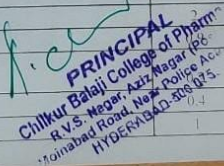 PRINCIPAL
Chilkur Balaji College of Pharm
R.V.S. Nagar, Aziz Nagar
Moinabad Road, Near Police Ac
HYDERABAD-500 075